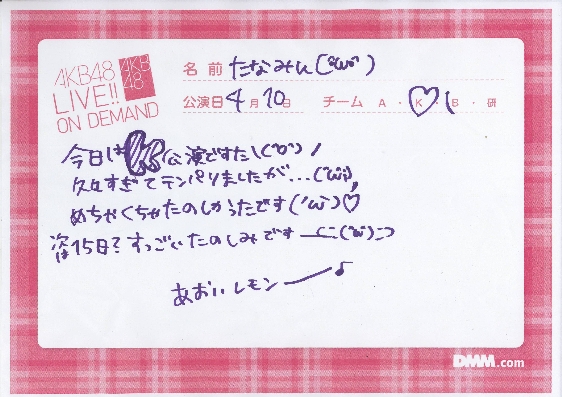 AKB48
LIVE!!
ON DEMAND
AKB
48
名前 たなみん(´ω`)
公演日 4月10日 チーム A・K・B・研
今日は 公演ですた\(^o^)/
久々すぎてテンパりましたが...(´ω`;)
めちゃくちゃたのしかったです('ω`)♡
次は15日?すっごいたのしみです─(´ω`)
あおいレモン──♪
DMM.com